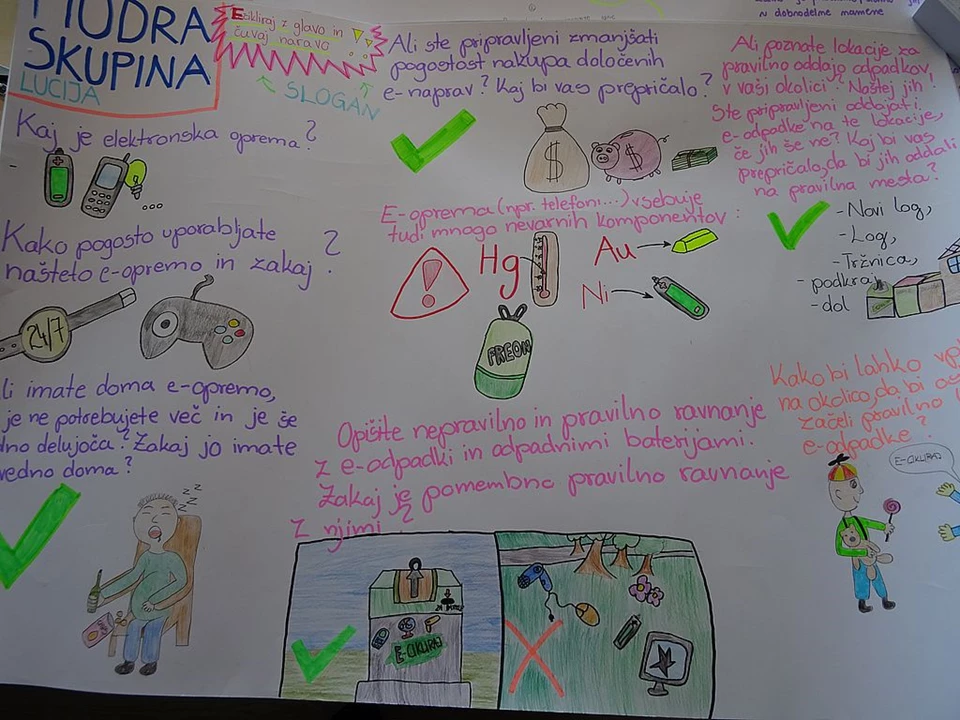 MODRA
SKUPINA
LUCIJA
E-cikliraj z glavo in
čuvaj naravo
SLOGAN
Kaj je elektronska oprema?
...
Kako pogosto uporabljate
našteto e-opremo in zakaj?
24/7
imate doma e-opremo,
je ne potrebujete več in je še
delujoča? Zakaj jo imate
doma?
z z z
Ali ste pripravljeni zmanjšati
pogostost nakupa določenih
e-naprav? Kaj bi vas prepričalo?
$ $
E-oprema (npr. telefoni...) vsebuje
tudi mnogo nevarnih komponentov:
!
Hg
Au
Ni
FREON
Opišite nepravilno in pravilno ravnanje
z e-odpadki in odpadnimi baterijami.
Zakaj je pomembno pravilno ravnanje
z njimi?
E-CIKLIRAJ
v dobrodelne namene
Ali poznate lokacije za
pravilno oddajo odpadkov
v vaši okolici? Naštej jih!
Ste pripravljeni oddajati
e-odpadke na te lokacije,
če jih še ne? Kaj bi vas
prepričalo, da bi jih oddali
na pravilna mesta?
- Novi log,
- Log,
- Tržnica,
- podkraj
- dol
Kako bi lahko
na okolico, da bi
začeli pravilno
e-odpadke?
E-CIKLIRAJ